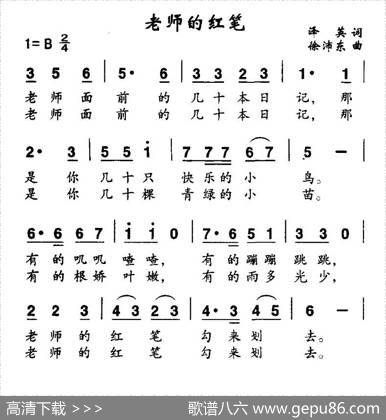 老师的红笔
1=B 2/4
泽英 词
徐沛东 曲
3 5 6 | 5· 6 | 3 3 2 3 | 1· 1 |
老师面前的几十本日记，那
老师面前的几十本日记，那
2· 3 | 5 5 i | 7 7 7 6 7 | 5 — |
是你几十只快乐的小鸟。
是你几十棵青绿的小苗。
6· 6 6 7 | i i 0 | 7· 6 5 1 | 3 3 0 |
有的叽叽喳喳，有的蹦蹦跳跳，
有的根娇叶嫩，有的雨多光少，
2 2 3 | 4 3 2 3 | 4· 3 4 5 | 6 — |
老师的红笔勾来划去。
老师的红笔勾来划去。
高清下载 >>>
歌谱八六 www.gepu86.com